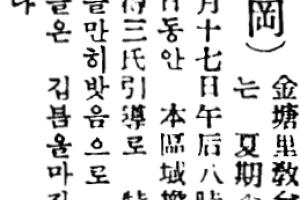 岡)
金塘里敎
는 夏期
月十七日午后八時
日동안 本區域
三氏引導로
을만히밧음으로
들은 깁븜을마